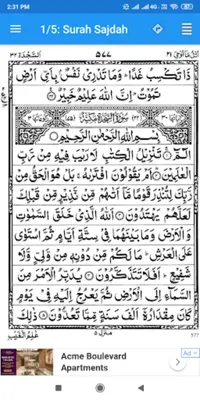 2:31 PM
1/5: Surah Sajdah
السَّجْدَة ٣٢
٥٨٧
ذَا تَكْسِبُ غَدًا ؕ وَمَا تَدْرِيْ نَفْسٌۢ بِاَيِّ اَرْضٍ
تَمُوْتُ ؕ اِنَّ اللّٰهَ عَلِيْمٌ خَبِيْرٌ
بِسْمِ اللّٰهِ الرَّحْمٰنِ الرَّحِيْمِ
الٓمّٓ تَنْزِيْلُ الْكِتٰبِ لَا رَيْبَ فِيْهِ مِنْ رَّبِّ
الْعٰلَمِيْنَ اَمْ يَقُوْلُوْنَ افْتَرٰىهُ ۚ بَلْ هُوَ الْحَقُّ مِنْ
رَّبِّكَ لِتُنْذِرَ قَوْمًا مَّاۤ اَتٰىهُمْ مِّنْ نَّذِيْرٍ مِّنْ قَبْلِكَ
لَعَلَّهُمْ يَهْتَدُوْنَ اَللّٰهُ الَّذِيْ خَلَقَ السَّمٰوٰتِ
وَالْاَرْضَ وَمَا بَيْنَهُمَا فِيْ سِتَّةِ اَيَّامٍ ثُمَّ اسْتَوٰى
عَلَى الْعَرْشِ ؕ مَا لَكُمْ مِّنْ دُوْنِهٖ مِنْ وَّلِيٍّ وَّلَا
شَفِيْعٍ ؕ اَفَلَا تَتَذَكَّرُوْنَ يُدَبِّرُ الْاَمْرَ مِنَ
السَّمَآءِ اِلَى الْاَرْضِ ثُمَّ يَعْرُجُ اِلَيْهِ فِيْ يَوْمٍ
كَانَ مِقْدَارُهٗۤ اَلْفَ سَنَةٍ مِّمَّا تَعُدُّوْنَ ذٰلِكَ
منزل ٥
عٰلِمُ الْغَيْبِ
Ad
Acme Boulevard
Apartments